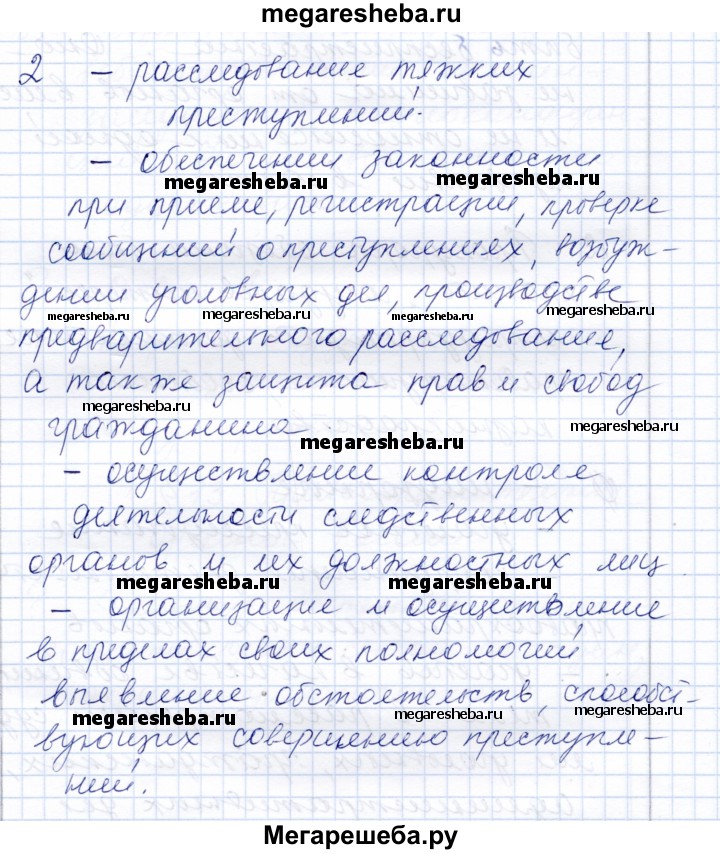 megaresheba.ru
2 – расследование тяжких
преступлений.
– обеспечении законности
megaresheba.ru megaresheba.ru
при приеме, регистрации, проверке
сообщений о преступлениях, возбуж-
дении уголовных дел, производстве
megaresheba.ru megaresheba.ru megaresheba.ru megaresheba.ru
предварительного расследования,
а также защита прав и свобод
megaresheba.ru megaresheba.ru
гражданина.
megaresheba.ru
– осуществлении контроля
деятельности следственных
органов и их должностных лиц
megaresheba.ru megaresheba.ru
– организация и осуществление
в пределах своих полномочий
выявление обстоятельств, способст-
megaresheba.ru megaresheba.ru megaresheba.ru
вующих совершению преступле-
ний.
Мегарешеба.ру